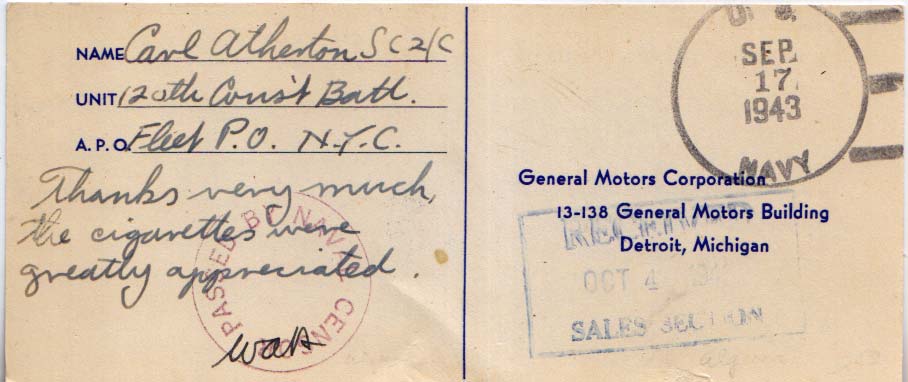 NAME Carl Atherton SC2/C
UNIT 120th Const Batt.
A.P.O. Fleet P.O. N.Y.C.
Thanks very much,
the cigarettes were
greatly appreciated.
PASSED BY NAVAL CENSOR
U.S.
SEP.
17
1943
NAVY
General Motors Corporation
13-138 General Motors Building
Detroit, Michigan
RECEIVED
OCT 4
SALES SECTION